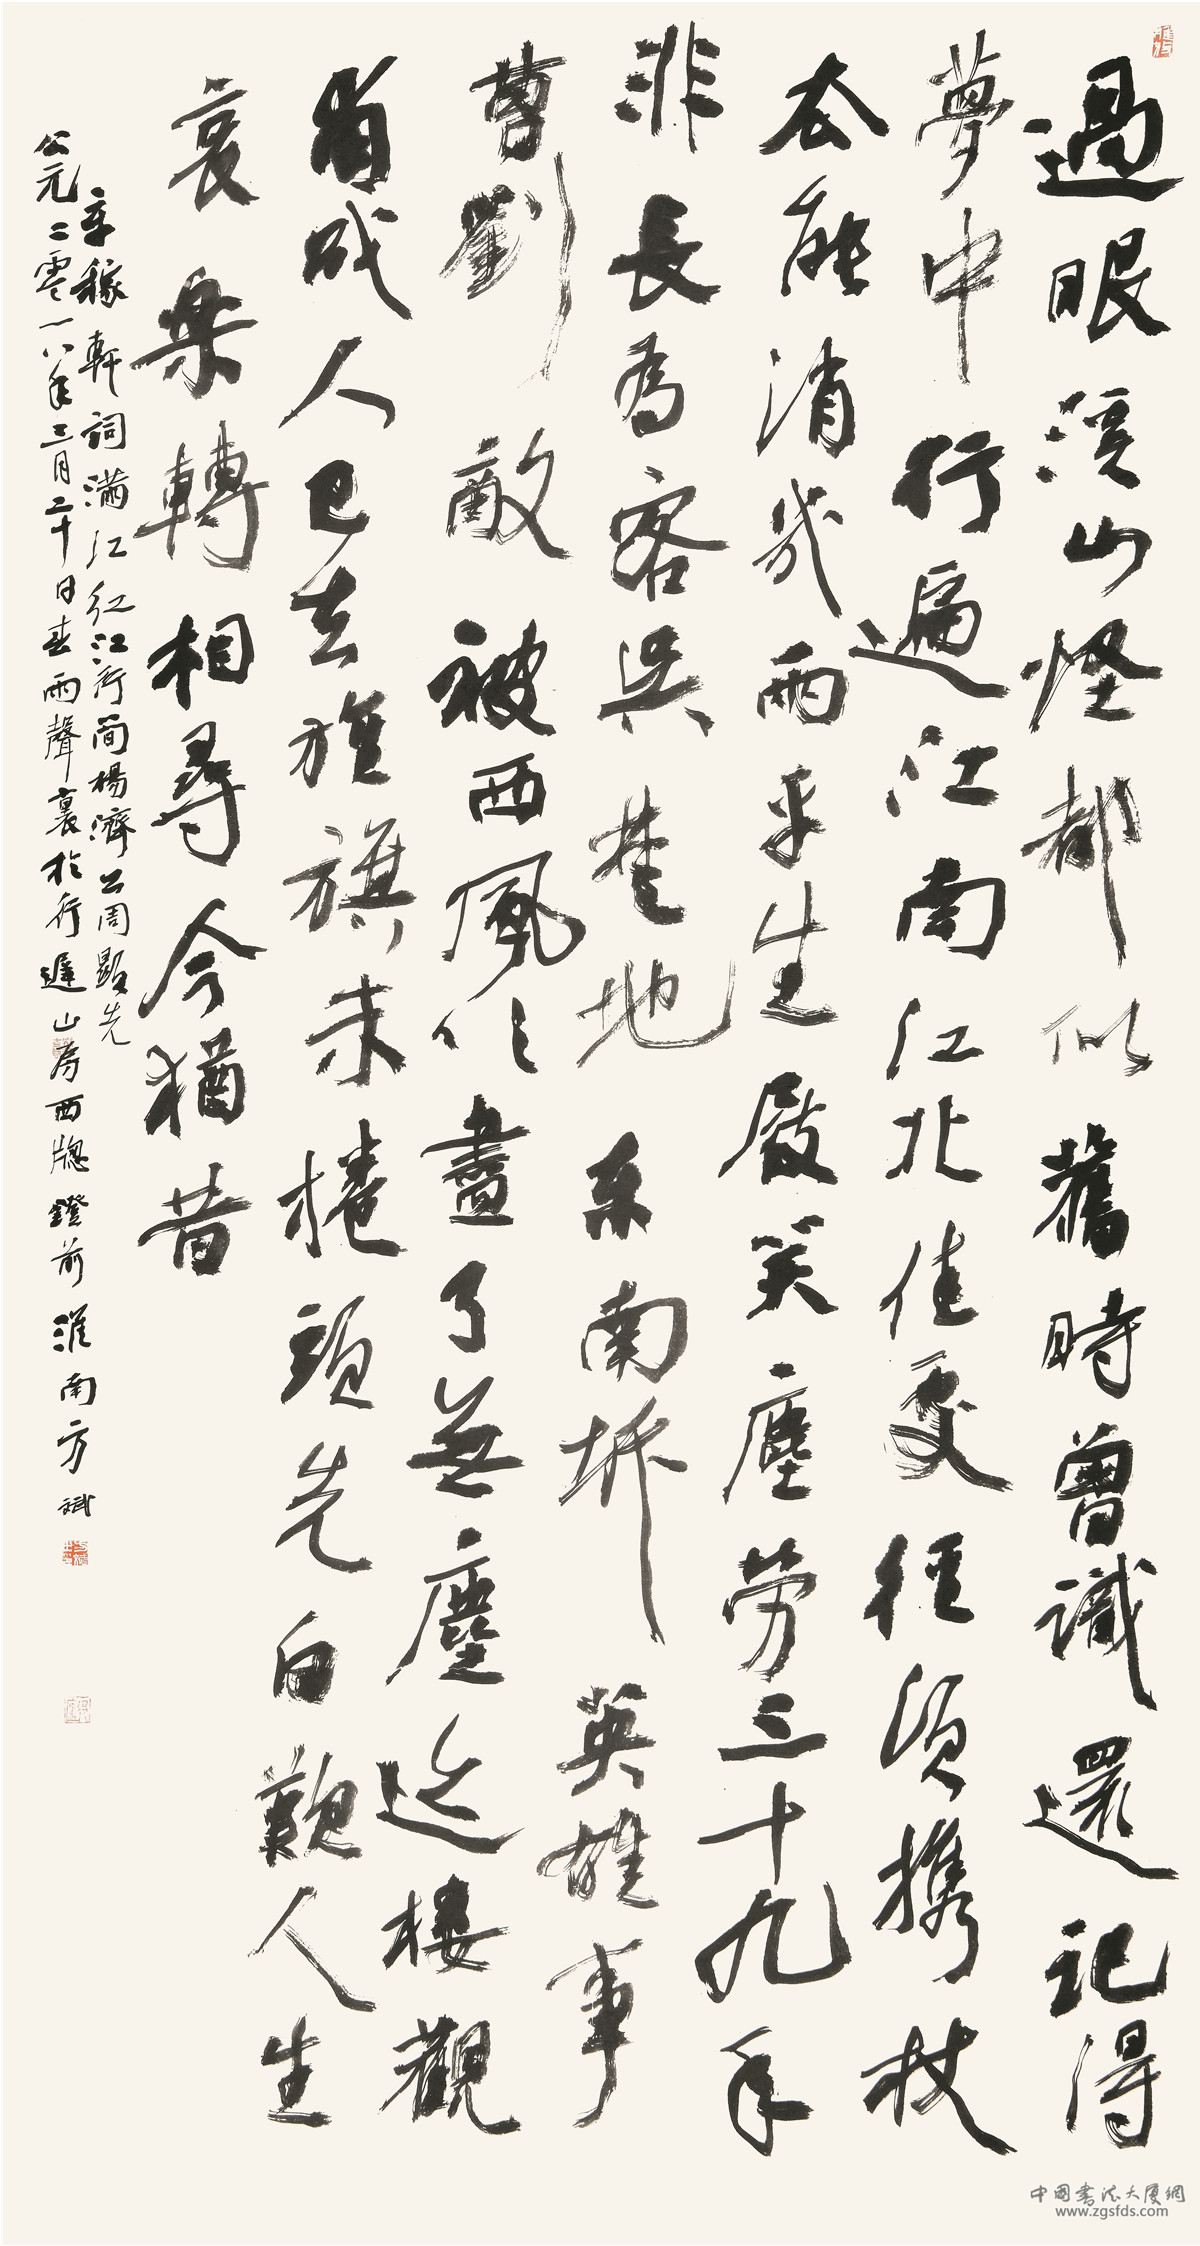 過眼溪山怪都似舊時曾識還記得
夢中行遍江南江北佳處徑須攜杖
去能消幾兩平生屐笑塵勞三十九年
非長為客吳楚地東南坼英雄事
曹劉敵被西風吹盡了無塵迹樓觀
甫成人已去旌旗未捲頭先白歎人生
哀樂轉相尋今猶昔
辛稼軒詞滿江紅江行簡楊濟公周顯先
公元二零一八年三月二十日春雨聲裏於行遲山房西牕鐙前淮南方斌
中国书法大厦網
www.zgsfds.com